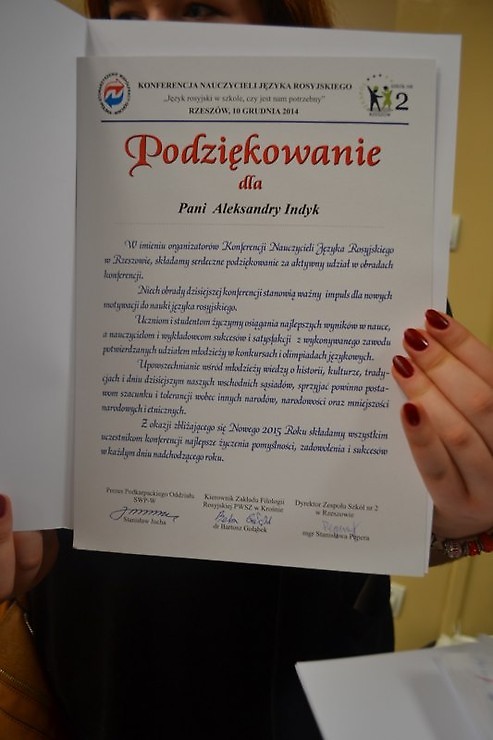 KONFERENCJA NAUCZYCIELI JĘZYKA ROSYJSKIEGO
„Język rosyjski w szkole, czy jest nam potrzebny"
RZESZÓW, 10 GRUDNIA 2014
2
Podziękowanie
dla
Pani Aleksandry Indyk
W imieniu organizatorów Konferencji Nauczycieli Języka Rosyjskiego
w Rzeszowie, składamy serdeczne podziękowanie za aktywny udział w obradach
konferencji.
Niech obrady dzisiejszej konferencji stanowią ważny impuls dla nowych
motywacji do nauki języka rosyjskiego.
Uczniom i studentom życzymy osiągania najlepszych wyników w nauce,
a nauczycielom i wykładowcom sukcesów i satysfakcji z wykonywanego zawodu
potwierdzanych udziałem młodzieży w konkursach i olimpiadach językowych.
Upowszechnianie wśród młodzieży wiedzy o historii, kulturze, trady-
cjach i dniu dzisiejszym naszych wschodnich sąsiadów, sprzyjać powinno posta-
wom szacunku i tolerancji wobec innych narodów, narodowości oraz mniejszości
narodowych i etnicznych.
Z okazji zbliżającego się Nowego 2015 Roku składamy wszystkim
uczestnikom konferencji najlepsze życzenia pomyślności, zadowolenia i sukcesów
w każdym dniu nadchodzącego roku.
Prezes Podkarpackiego Oddziału
SWP-W
Stanisław Jucha
Kierownik Zakładu Filologii
Rosyjskiej PWSZ w Krośnie
dr Bartosz Gołąbek
Dyrektor Zespołu Szkół nr 2
w Rzeszowie
mgr Stanisława Pępera